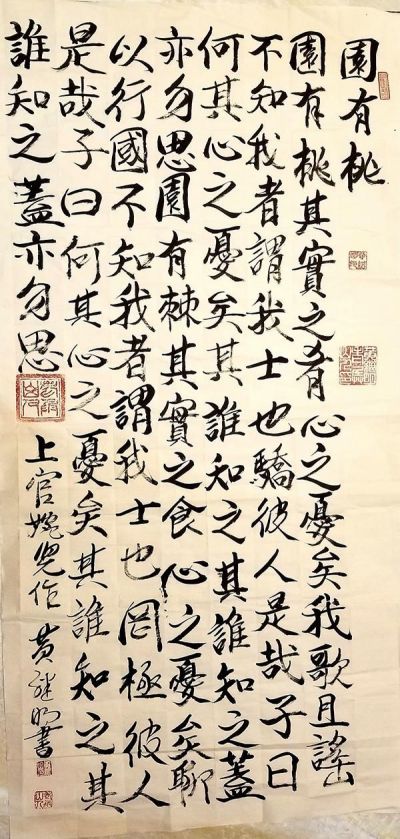 園有桃
園有桃其實之肴心之憂矣我歌且謠
不知我者謂我士也驕彼人是哉子曰
何其心之憂矣其誰知之其誰知之蓋
亦勿思園有棘其實之食心之憂矣聊
以行國不知我者謂我士也罔極彼人
是哉子曰何其心之憂矣其誰知之其
誰知之蓋亦勿思
上官婉兒作 黃 明書